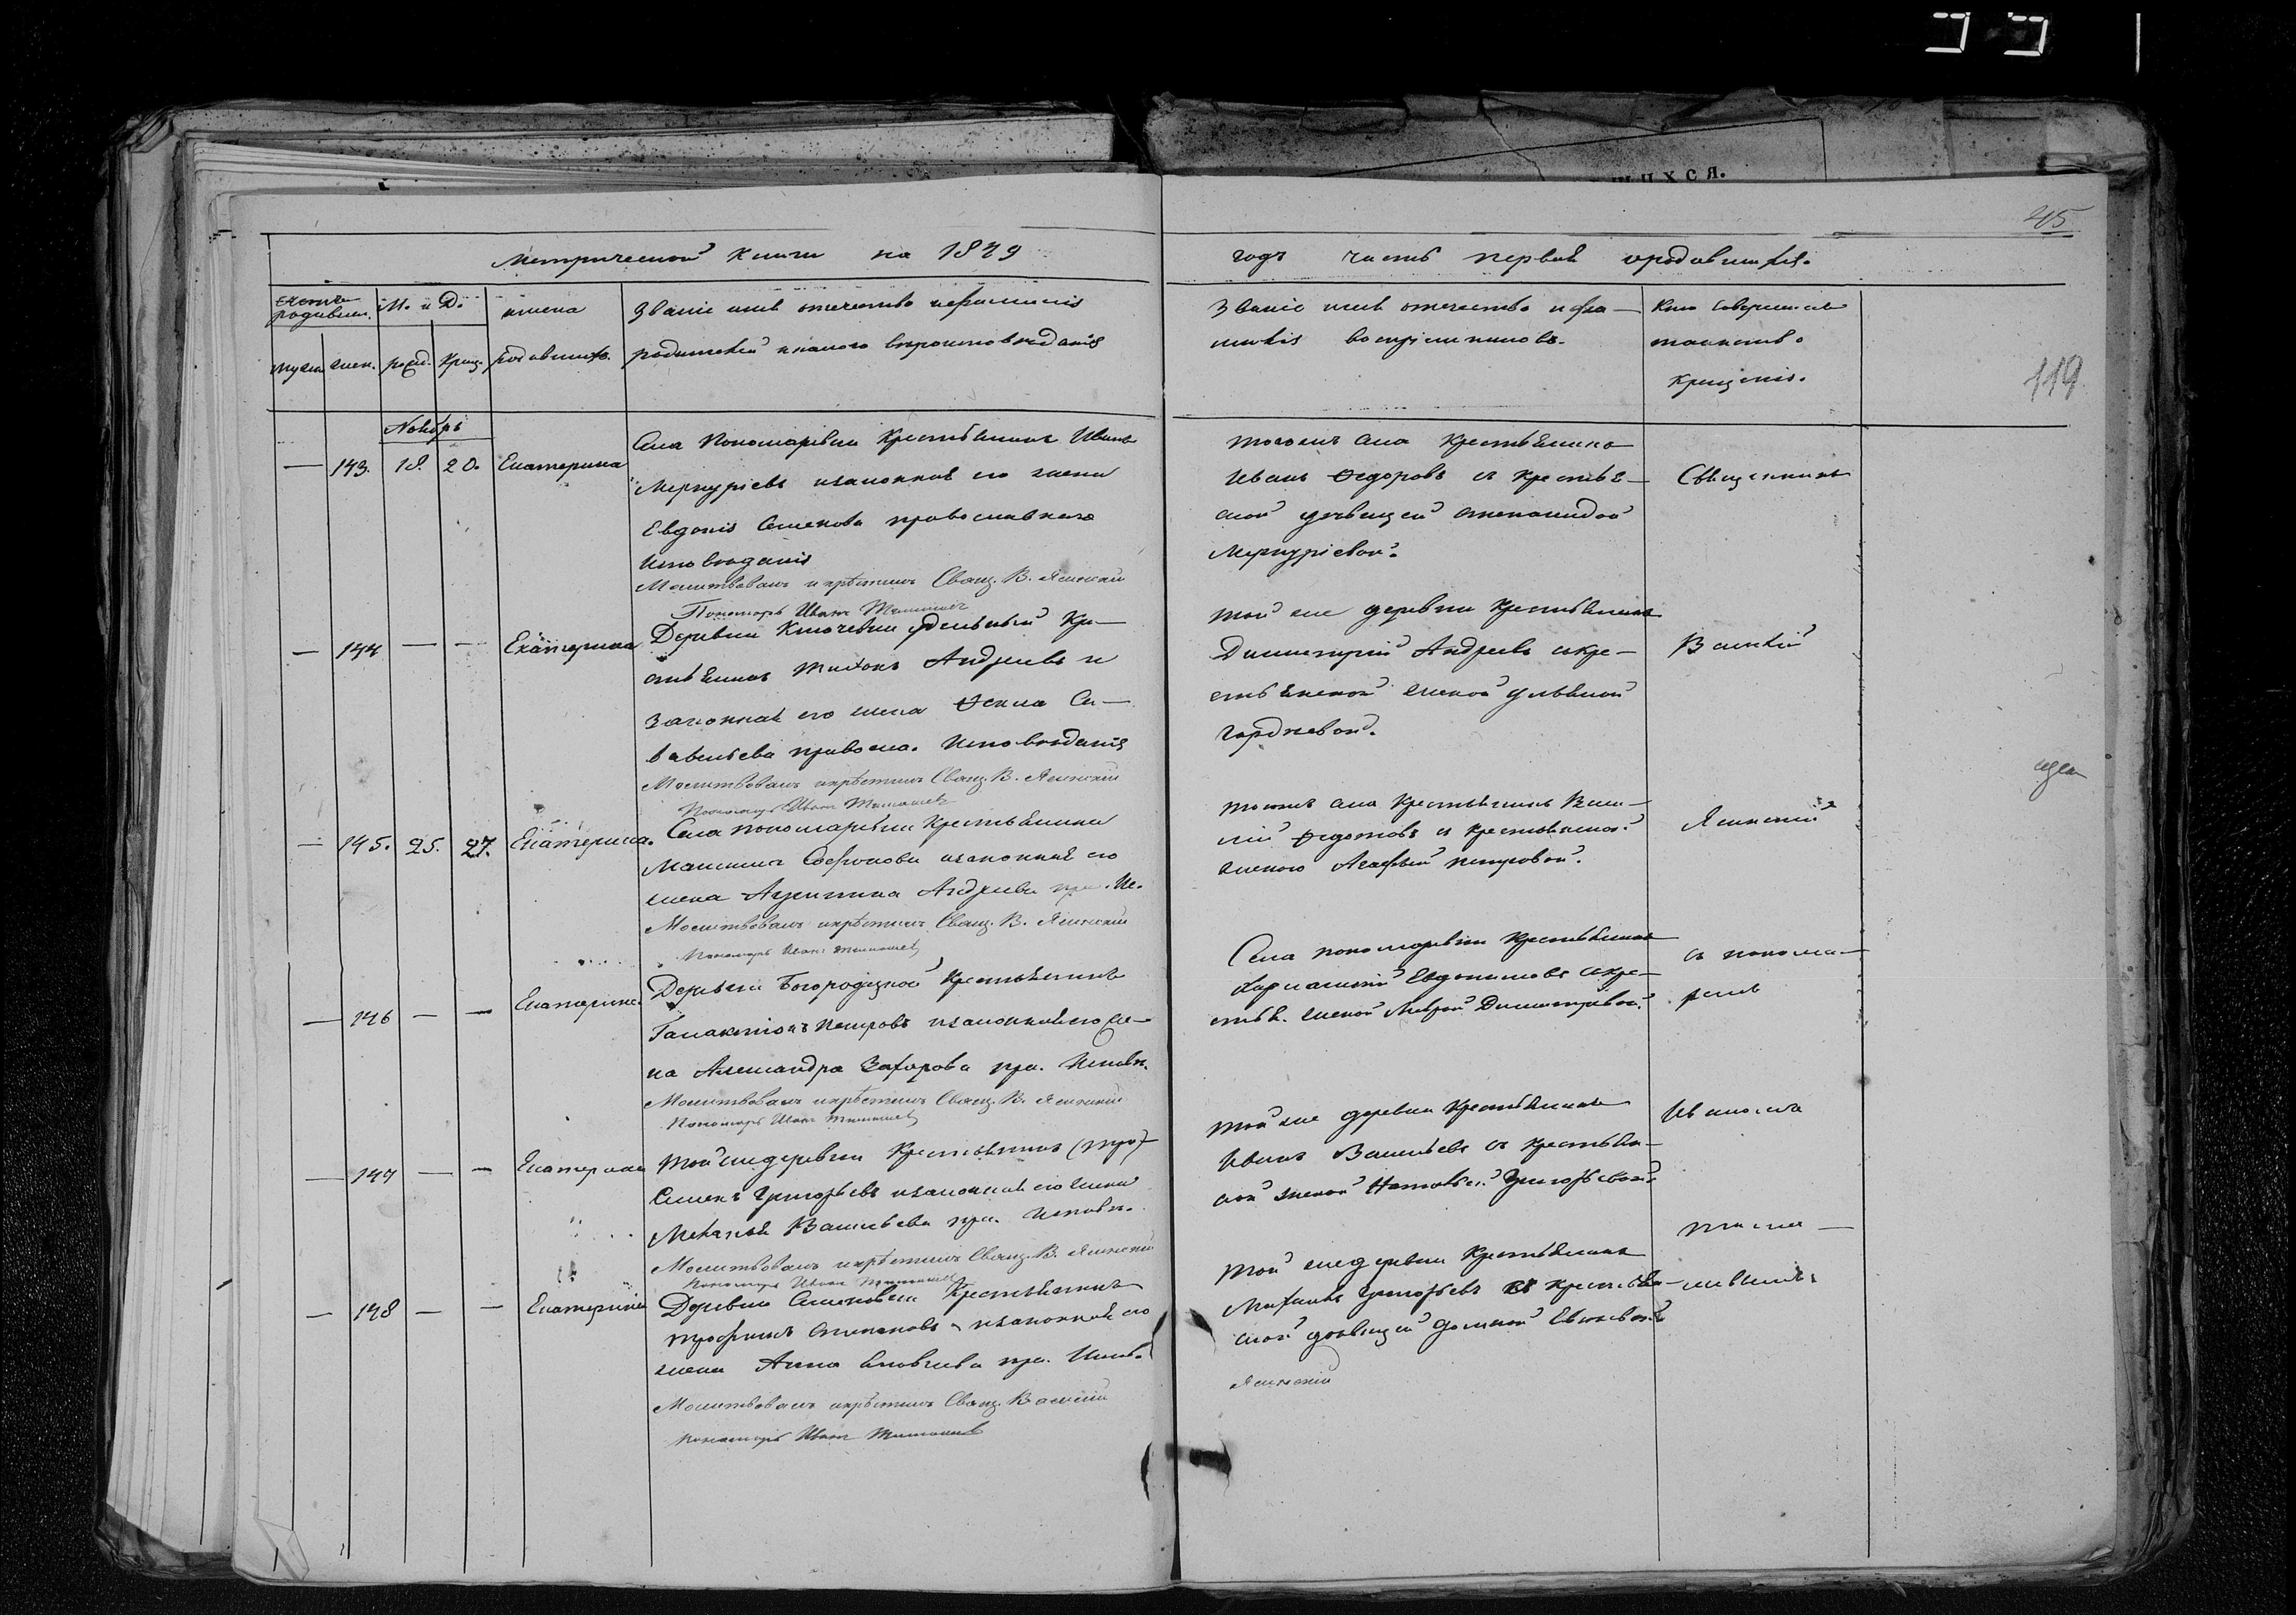 щихся.
45
Метрической книги на 1879
годъ часть первая о родившихся.
Счетъ родивших.
М. и Д.
имена
Званіе имя отчество и фамилія
муж. жен. рожд. крещ. родившихъ.
родителей и какого вѣроисповѣданія
Званіе имя отчество и фа—
милія воспріемниковъ.
Кто совершалъ
таинство
крещенія.
119
Ноябрь
— 143. 18. 20. Екатерина
Села Пономаревки Крестьянинъ Иванъ
Меркурьевъ и законная его жена
Евдокія Семенова православнаго
исповѣданія
Молитвовалъ и крѣстилъ Свящ. В. Ясинскій
Пономарь Иванъ
тогожъ села Крестьянинъ
Иванъ Ѳедоровъ съ крестья—
ской дѣвицей Степанидой
Меркуріевой.
Священникъ
— 144 — — Екатерина
Деревни Ключевки удельный Кре—
стьянинъ Тихонъ Андреевъ и
законная его жена Ѳекла Са—
вельева правосла. исповѣданія
Молитвовалъ и крѣстилъ Свящ. В. Ясинскій
Пономарь Иванъ
той же деревни Крестьянинъ
Димитрій Андреевъ съ кре—
стьянской женой Ульяной
Гордѣевой.
Василій
— 145. 25. 27. Екатерина.
Села Пономаревки Крестьянинъ
Максимъ Софроновъ и законная его
жена Агрипина Андреева пра. Ис.
Молитвовалъ и крѣстилъ Свящ. В. Ясинскій
Пономарь Иванъ
тогожъ села Крестьянинъ Васи—
лій Ѳедотовъ съ крестьянской
женою Агафьей Петровой.
Ясинскій
— 146 — — Екатерина
Деревни Богородицкой Крестьянинъ
Галактіонъ Петровъ и законная его же—
на Александра Захарова пра. Исповѣ.
Молитвовалъ и крѣстилъ Свящ. В. Ясинскій
Пономарь Иванъ
Села Пономаревки Крестьянинъ
Евдокимовъ съ кре—
стья. женой Маврой Димитріевой.
съ понома—
ремъ
— 147 — — Екатерина
той же деревни Крестьянинъ
Семенъ Григорьевъ и законная его жена
Меланья Васильева пра. Исповѣ.
Молитвовалъ и крѣстилъ Свящ. В. Ясинскій
Пономарь Иванъ
той же деревни Крестьянинъ
Иванъ Васильевъ съ крестьян—
ской женой Натальей Григорьевой.
Иваномъ
— 148 — — Екатерина
Деревни Семеновки Крестьянинъ
Трофимъ Степановъ и законная его
жена Анна пра. Испов.
Молитвовалъ и крѣстилъ Свящ. Василій
Ясинскій
Пономарь Иванъ
той же деревни Крестьянинъ
Михаилъ Григорьевъ съ крестьян—
ской дѣвицей Домной